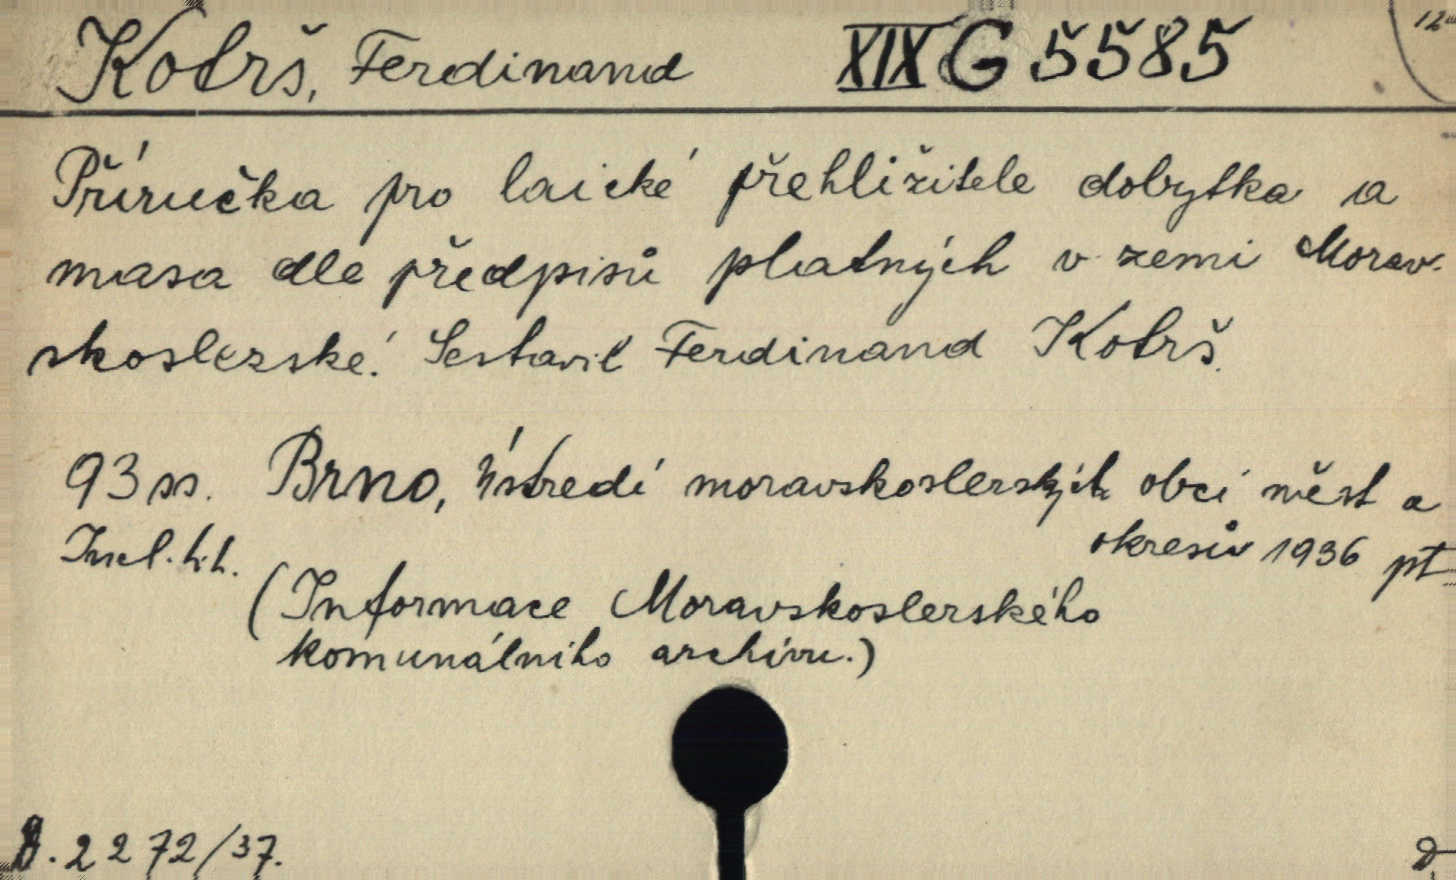 Kobrš, Ferdinand XIX G 5585
Příručka pro laické přehližitele dobytka a
masa dle předpisů platných v zemi Morav-
skoslezské. Sestavil Ferdinand Kobrš.
93 ss. Brno, Ústředí moravskoslezských obcí měst a
okresův 1936 pt
Incl. h. h.
(Informace Moravskoslezského
komunálního archivu.)
B. 2272/37.
D.